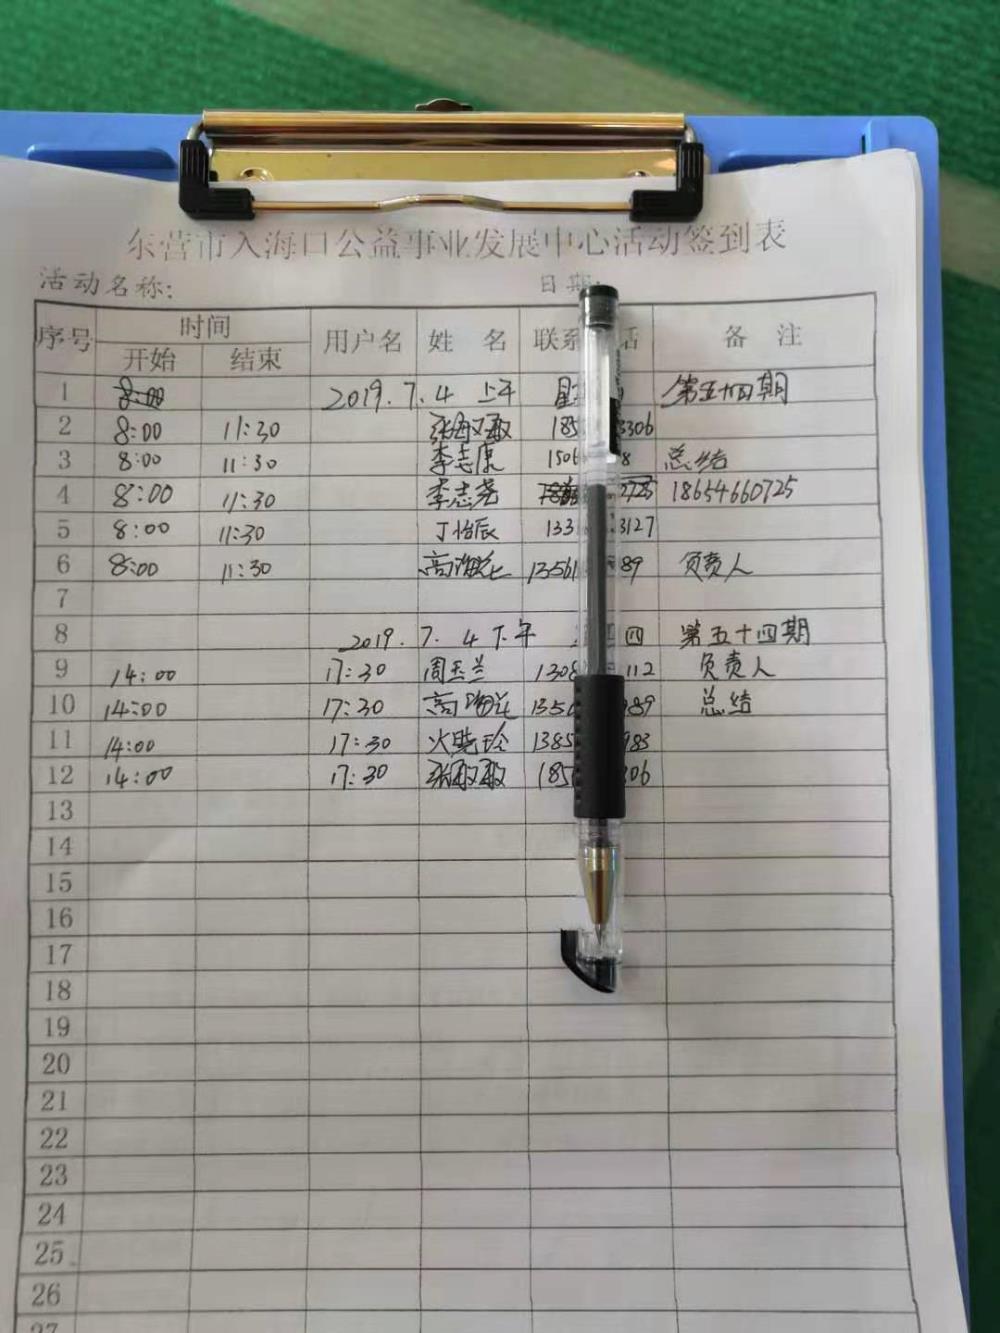 东营市入海口公益事业发展中心活动签到表
活动名称: 日期:
序号 时间 用户名 姓 名 联系 话 备 注
开始 结束
1 8:00 2019.7.4 上午 星 第五十四期
2 8:00 11:30 185 3306
3 8:00 11:30 李志康 150 8 总结
4 8:00 11:30 李志尧 2725 18654660725
5 8:00 11:30 丁怡辰 133 3127
6 8:00 11:30 高 13561 89 负责人
7
8 2019.7.4 下午 四 第五十四期
9 14:00 17:30 周玉兰 130 112 负责人
10 14:00 17:30 高 135 989 总结
11 14:00 17:30 火晓玲 1385 983
12 14:00 17:30 185 306
13
14
15
16
17
18
19
20
21
22
23
24
25
26
27